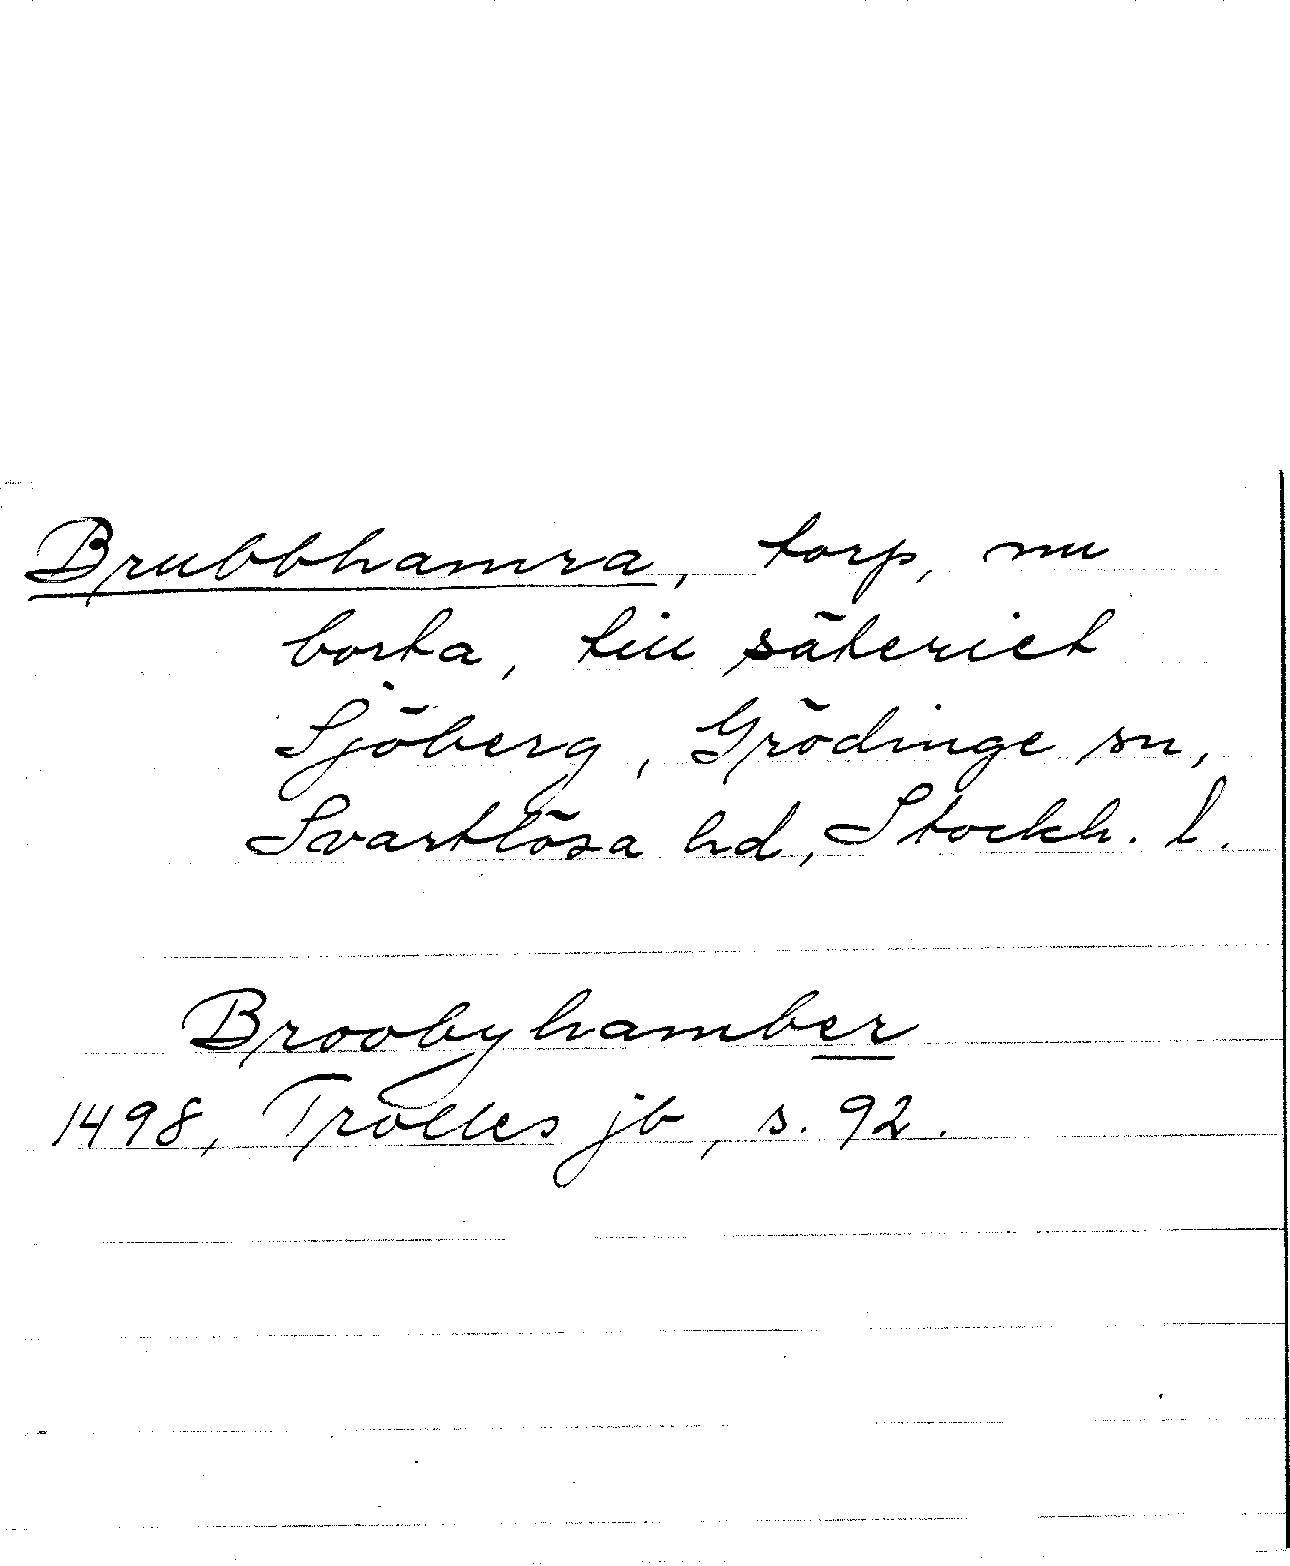 Brubbhamra, torp, nu
borta, till säteriet
Sjöberg, Grödinge sn,
Svartlösa hd, Stockh. l.
Broobyhamber
1498, Trolles jb, s. 92.